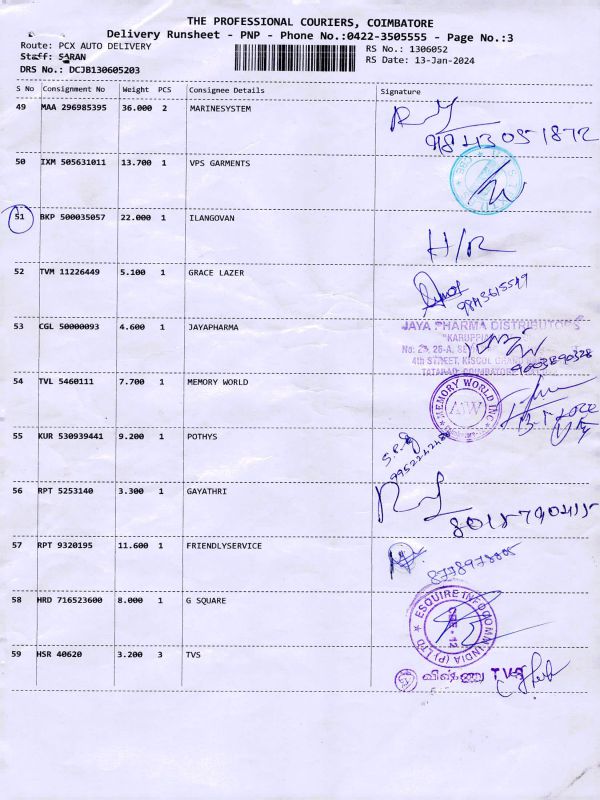 THE PROFESSIONAL COURIERS, COIMBATORE
Delivery Runsheet - PNP - Phone No.:0422-3505555 - Page No.:3
Route: PCX AUTO DELIVERY
RS No.: 1306052
Staff: SARAN
RS Date: 13-Jan-2024
DRS No.: DCJB130605203
S No Consignment No Weight PCS Consignee Details Signature
49 MAA 296985395 36.000 2 MARINESYSTEM
50 IXM 505631011 13.700 1 VPS GARMENTS
51 BKP 500035057 22.000 1 ILANGOVAN
H/R
52 TVM 11226449 5.100 1 GRACE LAZER
9843615549
53 CGL 50000093 4.600 1 JAYAPHARMA
JAYA PHARMA DISTRIBUTORS
4th STREET,
9003890328
54 TVL 5460111 7.700 1 MEMORY WORLD
MEMORY WORLD INC
MW
55 KUR 530939441 9.200 1 POTHYS
56 RPT 5253140 3.300 1 GAYATHRI
57 RPT 9320195 11.600 1 FRIENDLYSERVICE
58 HRD 716523600 8.000 1 G SQUARE
ESQUIRE INFOCOM INDIA (P) LTD
59 HSR 40620 3.200 3 TVS
விஷ்ணு TVS